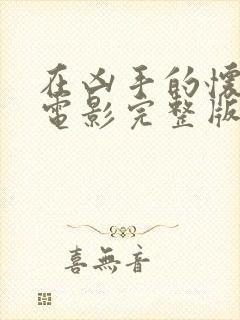 在凶手的懷
電影完整版
喜無音